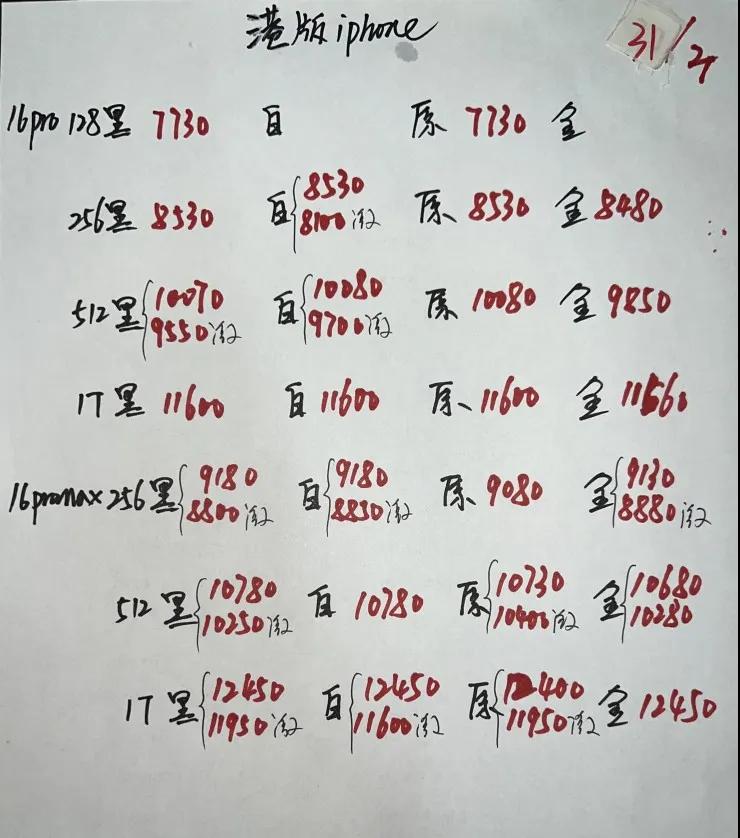 港版iphone
31/2
16pro 128黑 7730 白 原 7730 金
256黑 8530 白 8530 8100激 原 8530 金 8480
512黑 10070 9550激 白 10080 9700激 原 10080 金 9850
1T 黑 11600 白 11600 原 11600 金 11560
16promax 256黑 9180 8800激 白 9180 8830激 原 9080 金 9130 8880激
512 黑 10780 10250激 白 10780 原 10730 10400激 金 10680 10280
1T 黑 12450 11950激 白 12450 11600激 原 12400 11950激 金 12450